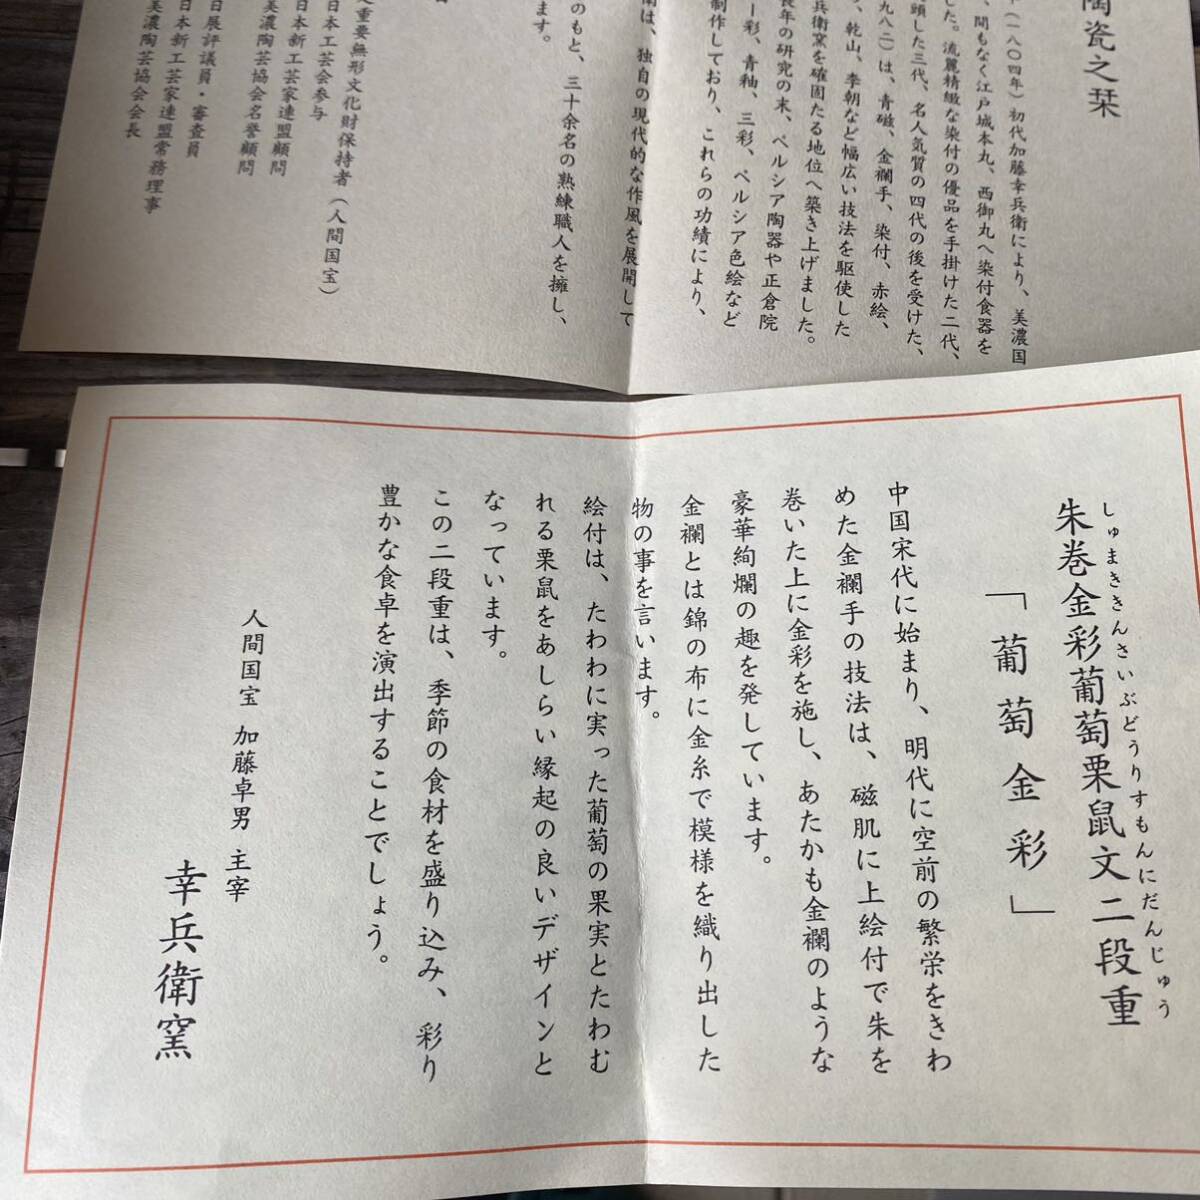 陶瓷之栞
（一八〇四年）初代加藤幸兵衛により、美濃国
、間もなく江戸城本丸、西御丸へ染付食器を
した。流麗精緻な染付の優品を手掛けた二代、
頭した三代、名人気質の四代の後を受けた、
九八二）は、青磁、金襴手、染付、赤絵、
、乾山、李朝など幅広い技法を駆使した
兵衛窯を確固たる地位へ築き上げました。
長年の研究の末、ペルシア陶器や正倉院
ー彩、青釉、三彩、ペルシア色絵など
制作しており、これらの功績により、
衛は、独自の現代的な作風を展開して
のもと、三十余名の熟練職人を擁し、
ます。
重要無形文化財保持者（人間国宝）
日本工芸会参与
日本新工芸家連盟顧問
美濃陶芸協会名誉顧問
日展評議員・審査員
日本新工芸家連盟常務理事
美濃陶芸協会会長
しゅまききんさいぶどうりすもんにだんじゅう
朱巻金彩葡萄栗鼠文二段重
「葡萄金彩」
中国宋代に始まり、明代に空前の繁栄をきわ
めた金襴手の技法は、磁肌に上絵付で朱を
巻いた上に金彩を施し、あたかも金襴のような
豪華絢爛の趣を発しています。
金襴とは錦の布に金糸で模様を織り出した
物の事を言います。
絵付は、たわわに実った葡萄の果実とたわむ
れる栗鼠をあしらい縁起の良いデザインと
なっています。
この二段重は、季節の食材を盛り込み、彩り
豊かな食卓を演出することでしょう。
人間国宝 加藤卓男 主宰
幸兵衛窯